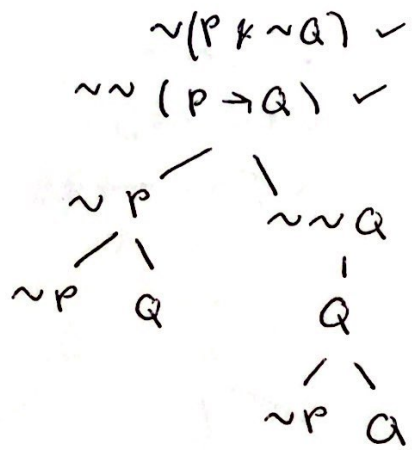 ~(P & ~Q) ✓
~~(P → Q) ✓
~P ~~Q
~P Q Q
~P Q